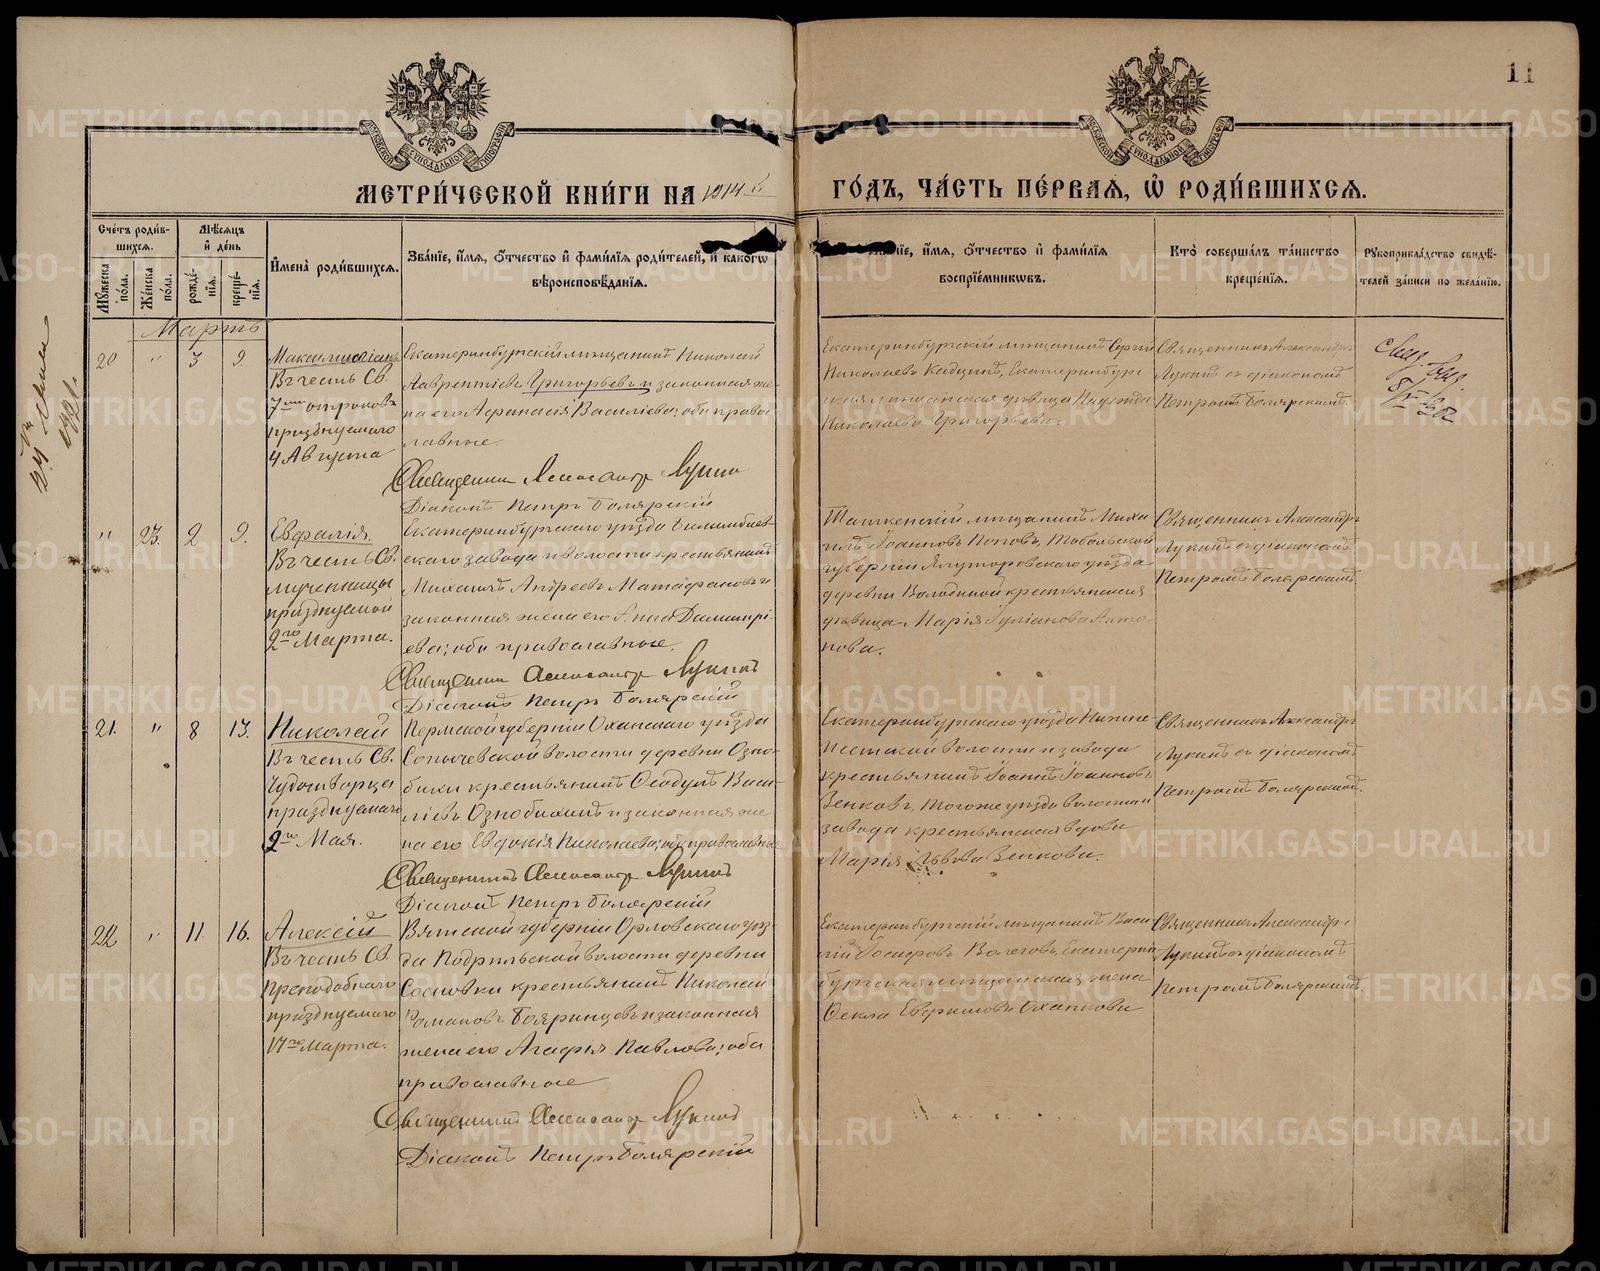 11
МЕТРИ́ЧЕСКОЙ КНИ́ГИ НА 1914 й ГО́ДЪ, ЧА́СТЬ ПЕ́РВАѦ, Ѡ҆ РОДИ́ВШИХСѦ.
Сче́тъ роди́вшихсѧ.
Мꙋ́жеска по́ла.
Же́нска по́ла.
Мѣ́сѧцъ и҆ де́нь
рожде́нїѧ.
креще́нїѧ.
И҆мена̀ роди́вшихсѧ.
Зва́нїе, и҆́мѧ, ѻ҆́тчество и҆ фами́лїѧ роди́телей, и҆ како́гѡ вѣроисповѣ́данїѧ.
и҆́мѧ, ѻ҆́тчество и҆ фами́лїѧ воспрїе́мникѡвъ.
Кто̀ соверша́лъ та́инство креще́нїѧ.
Рꙋкоприкла́дство свидѣ́телей за́писи по жела́нїю.
Мартъ
20 " 3 9. Максимиліанъ
Въ честь Св.
7ми отроковъ
празднуемаго
4 Августа
Екатеринбургскій мѣщанинъ Николай
Лаврентіевъ Григорьевъ и законная же
на его Афанасія Василіева; оба право
славные.
Священникъ Александръ Лукинъ
Діаконъ Петръ Боярскій
Екатеринбургскій мѣщанинъ Сергій
Николаевъ Екатеринбург
ская мѣщанская дѣвица Надежда
Николаева Григорьева.
Священникъ Александръ
Лукинъ съ діакономъ
Петромъ Боярскимъ.
" 23. 2 9. Евфалія.
Въ честь Св.
мученицы
празднуемой
2го Марта.
Екатеринбургскаго уѣзда Билимбаев-
скаго завода и волости крестьянинъ
Михаилъ Андреевъ и
законная жена его Анна Димитрі-
ева; оба православные.
Священникъ Александръ Лукинъ
Діаконъ Петръ Боярскій
Ташкенскій мѣщанинъ Миха
илъ Іоанновъ Поповъ, Тобольской
губерніи Ялуторовскаго уѣзда
деревни Володиной крестьянская
дѣвица Марія Іуліанова Анто-
нова.
Священникъ Александръ
Лукинъ съ діакономъ
Петромъ Боярскимъ.
21. " 8 13. Николай
Въ честь Св.
Чудотворца
празднуемаго
9го Мая.
Пермской губерніи Оханскаго уѣзда
Сосычевской волости деревни Озно-
бихи крестьянинъ Ѳеодулъ Васи-
ліевъ Ознобихинъ и законная же
на его Евдокія Николаева; оба православные
Священникъ Александръ Лукинъ
Діаконъ Петръ Боярскій
Екатеринбургскаго уѣзда Нижне
Исетской волости и завода
крестьянинъ Іоаннъ Іоанновъ
Зенковъ, того же уѣзда волости и
завода крестьянская вдова
Марія Львова Зенкова.
Священникъ Александръ
Лукинъ съ діакономъ
Петромъ Боярскимъ.
22 " 11. 16. Алексій
Въ честь Св.
преподобнаго
празднуемаго
17го Марта.
Вятской губерніи Орловскаго уѣз-
да Подрельской волости деревни
Сосновки крестьянинъ Николай
Романовъ Бояринцевъ и законная
жена его Агафія Павлова; оба
православные
Священникъ Александръ Лукинъ
Діаконъ Петръ Боярскій
Екатеринбургскій мѣщанинъ Васи
лій Іосифовъ Вологовъ, Екатерин
бургская мѣщанская жена
Ѳекла Ефримова Оханкова
Священникъ Александръ
Лукинъ съ діакономъ
Петромъ Боярскимъ.
METRIKI.GASO-URAL.RU